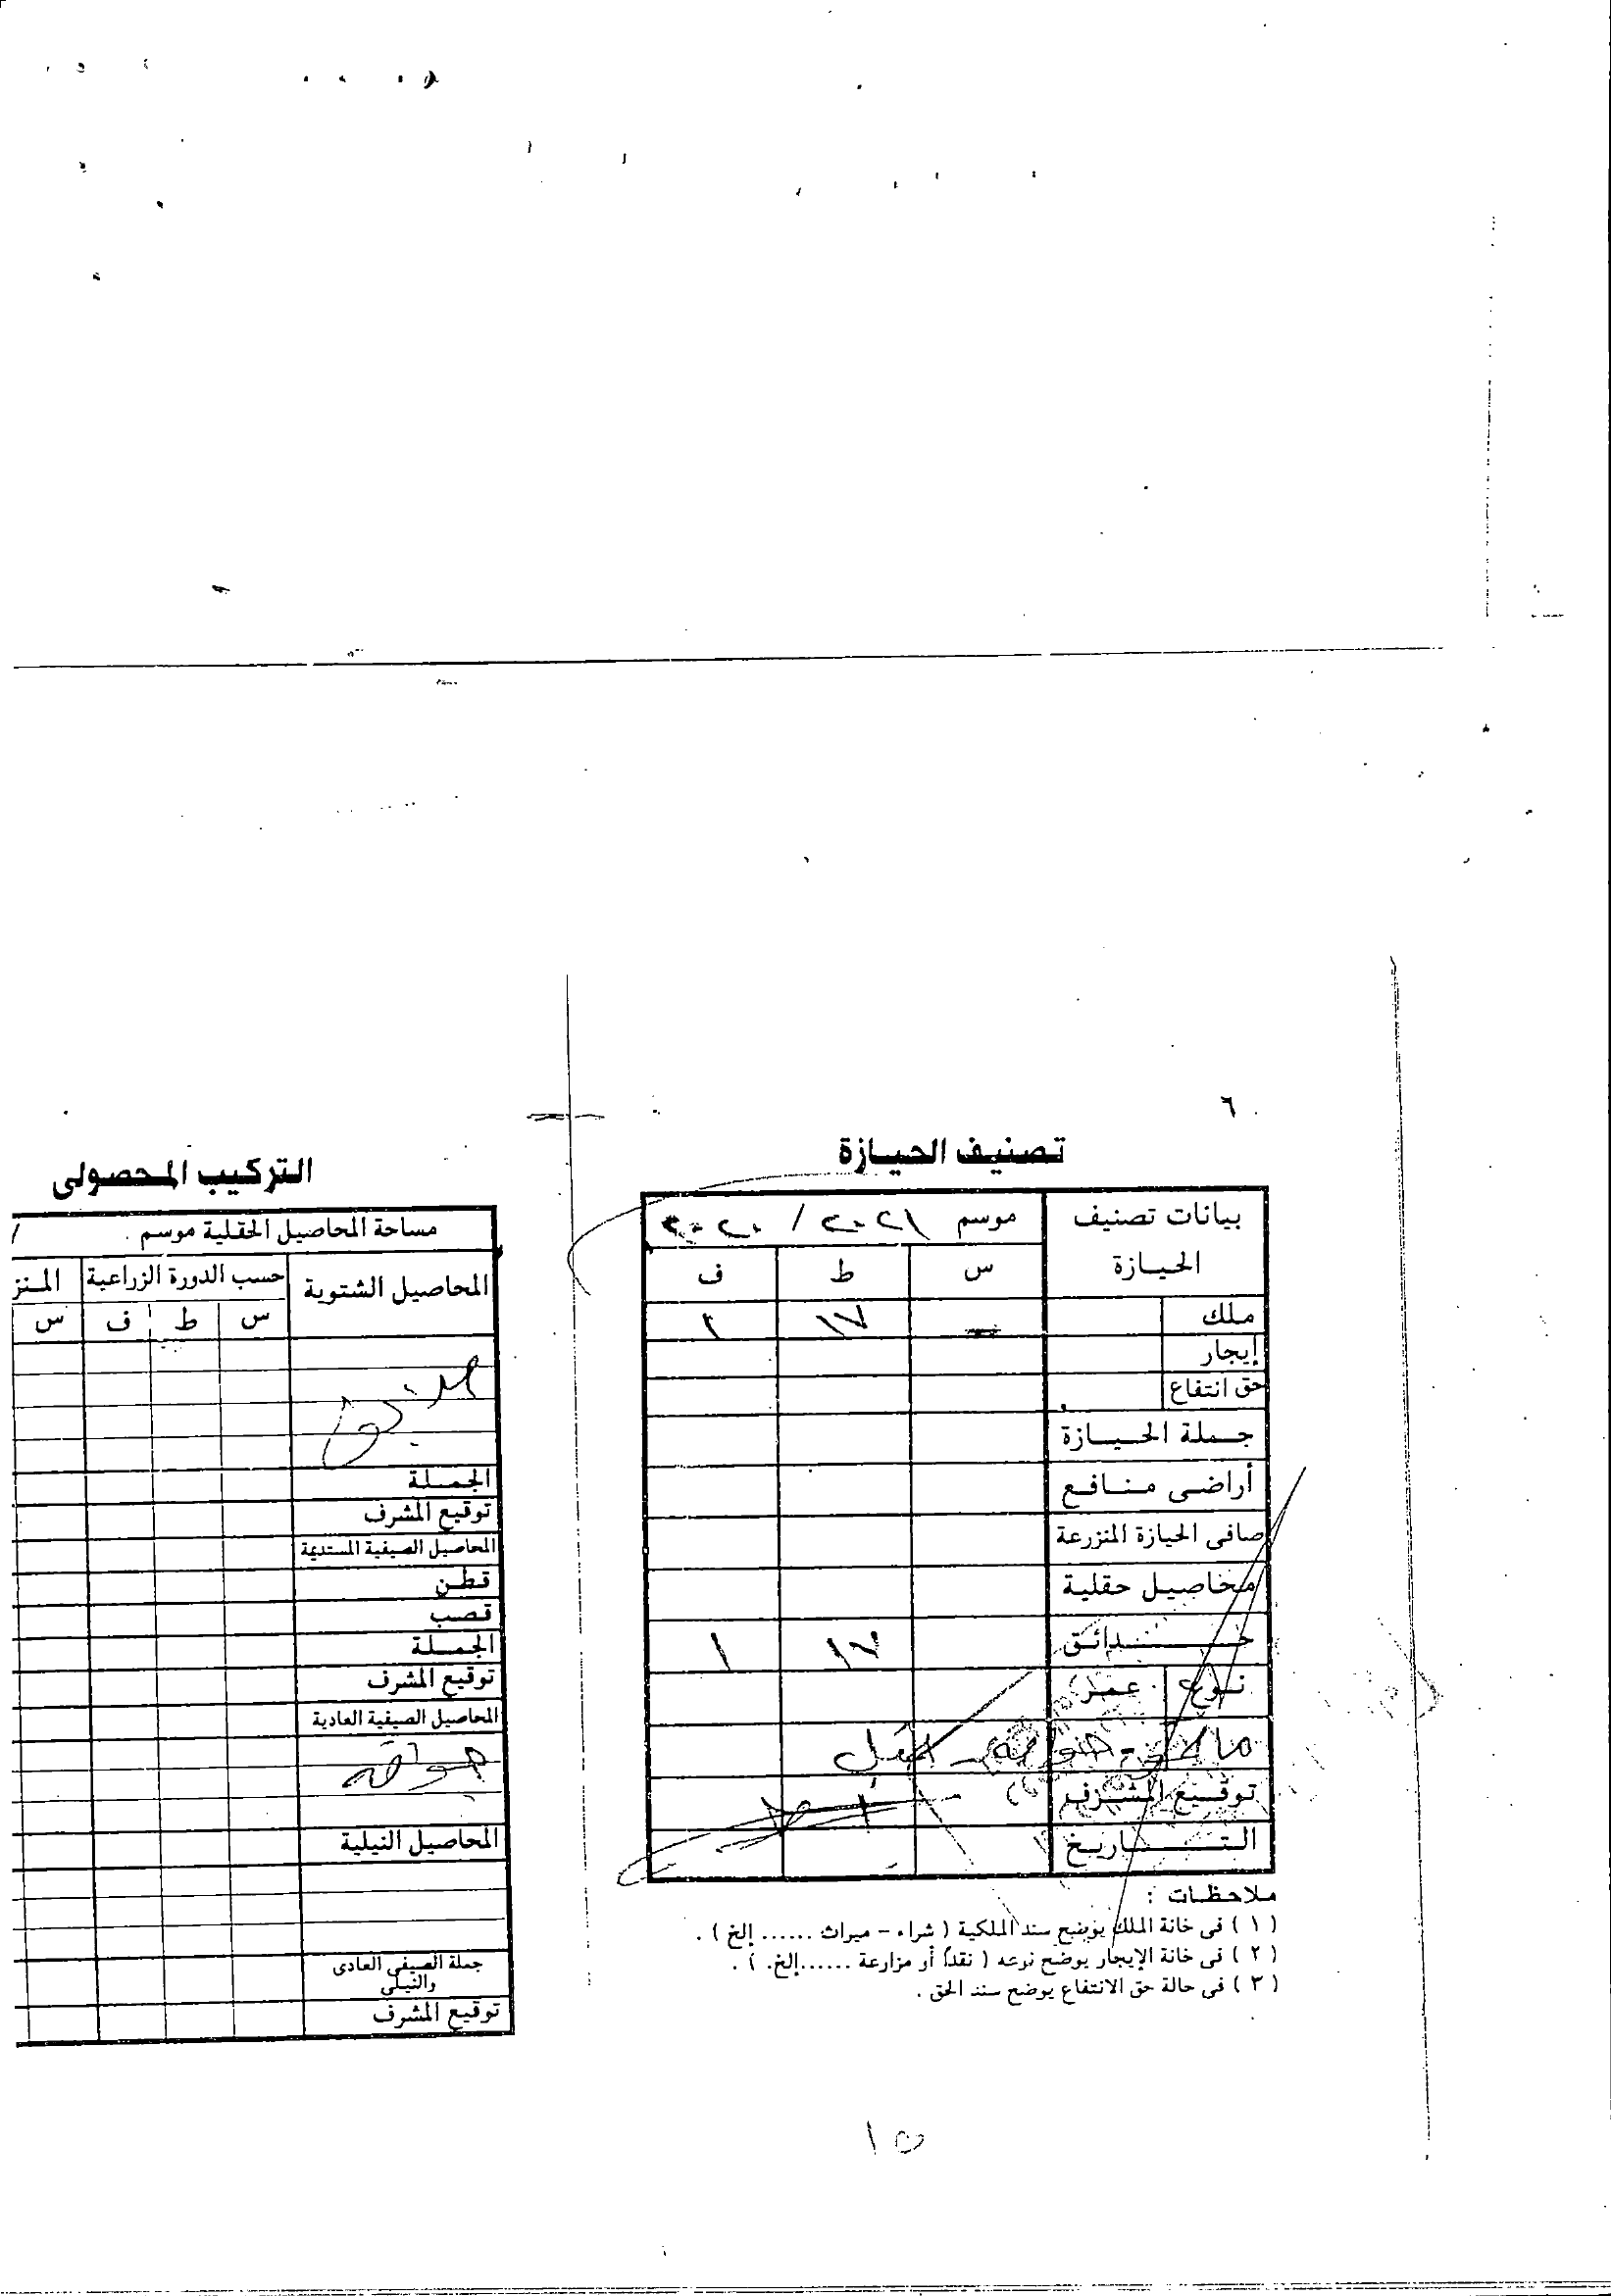 ٦
تصنيف الحيازة
بيانات تصنيف الحيازة
موسم ٢٠٢١ / ٢٠٢٠
س ط ف
ملك ١٧
إيجار
حق انتفاع
جملة الحيازة
أراضى منافع
صافى الحيازة المنزرعة
محاصيل حقلية
حدائق ١٧ ١
نوع عمر
توقيع المشرف
التاريخ
ملاحظات :
( ١ ) فى خانة الملك يوضح سند الملكية ( شراء - ميراث ...... إلخ ) .
( ٢ ) فى خانة الإيجار يوضح نوعه ( نقداً أو مزارعة ......إلخ. ) .
( ٣ ) فى حالة حق الانتفاع يوضح سند الحق .
التركيب المحصولى
مساحة المحاصيل الحقلية موسم /
المحاصيل الشتوية حسب الدورة الزراعية المنز
س ط ف س
الجملة
توقيع المشرف
المحاصيل الصيفية المستديمة
قطن
قصب
الجملة
توقيع المشرف
المحاصيل الصيفية العادية
المحاصيل النيلية
جملة الصيفى العادى
والنيلى
توقيع المشرف
١٥